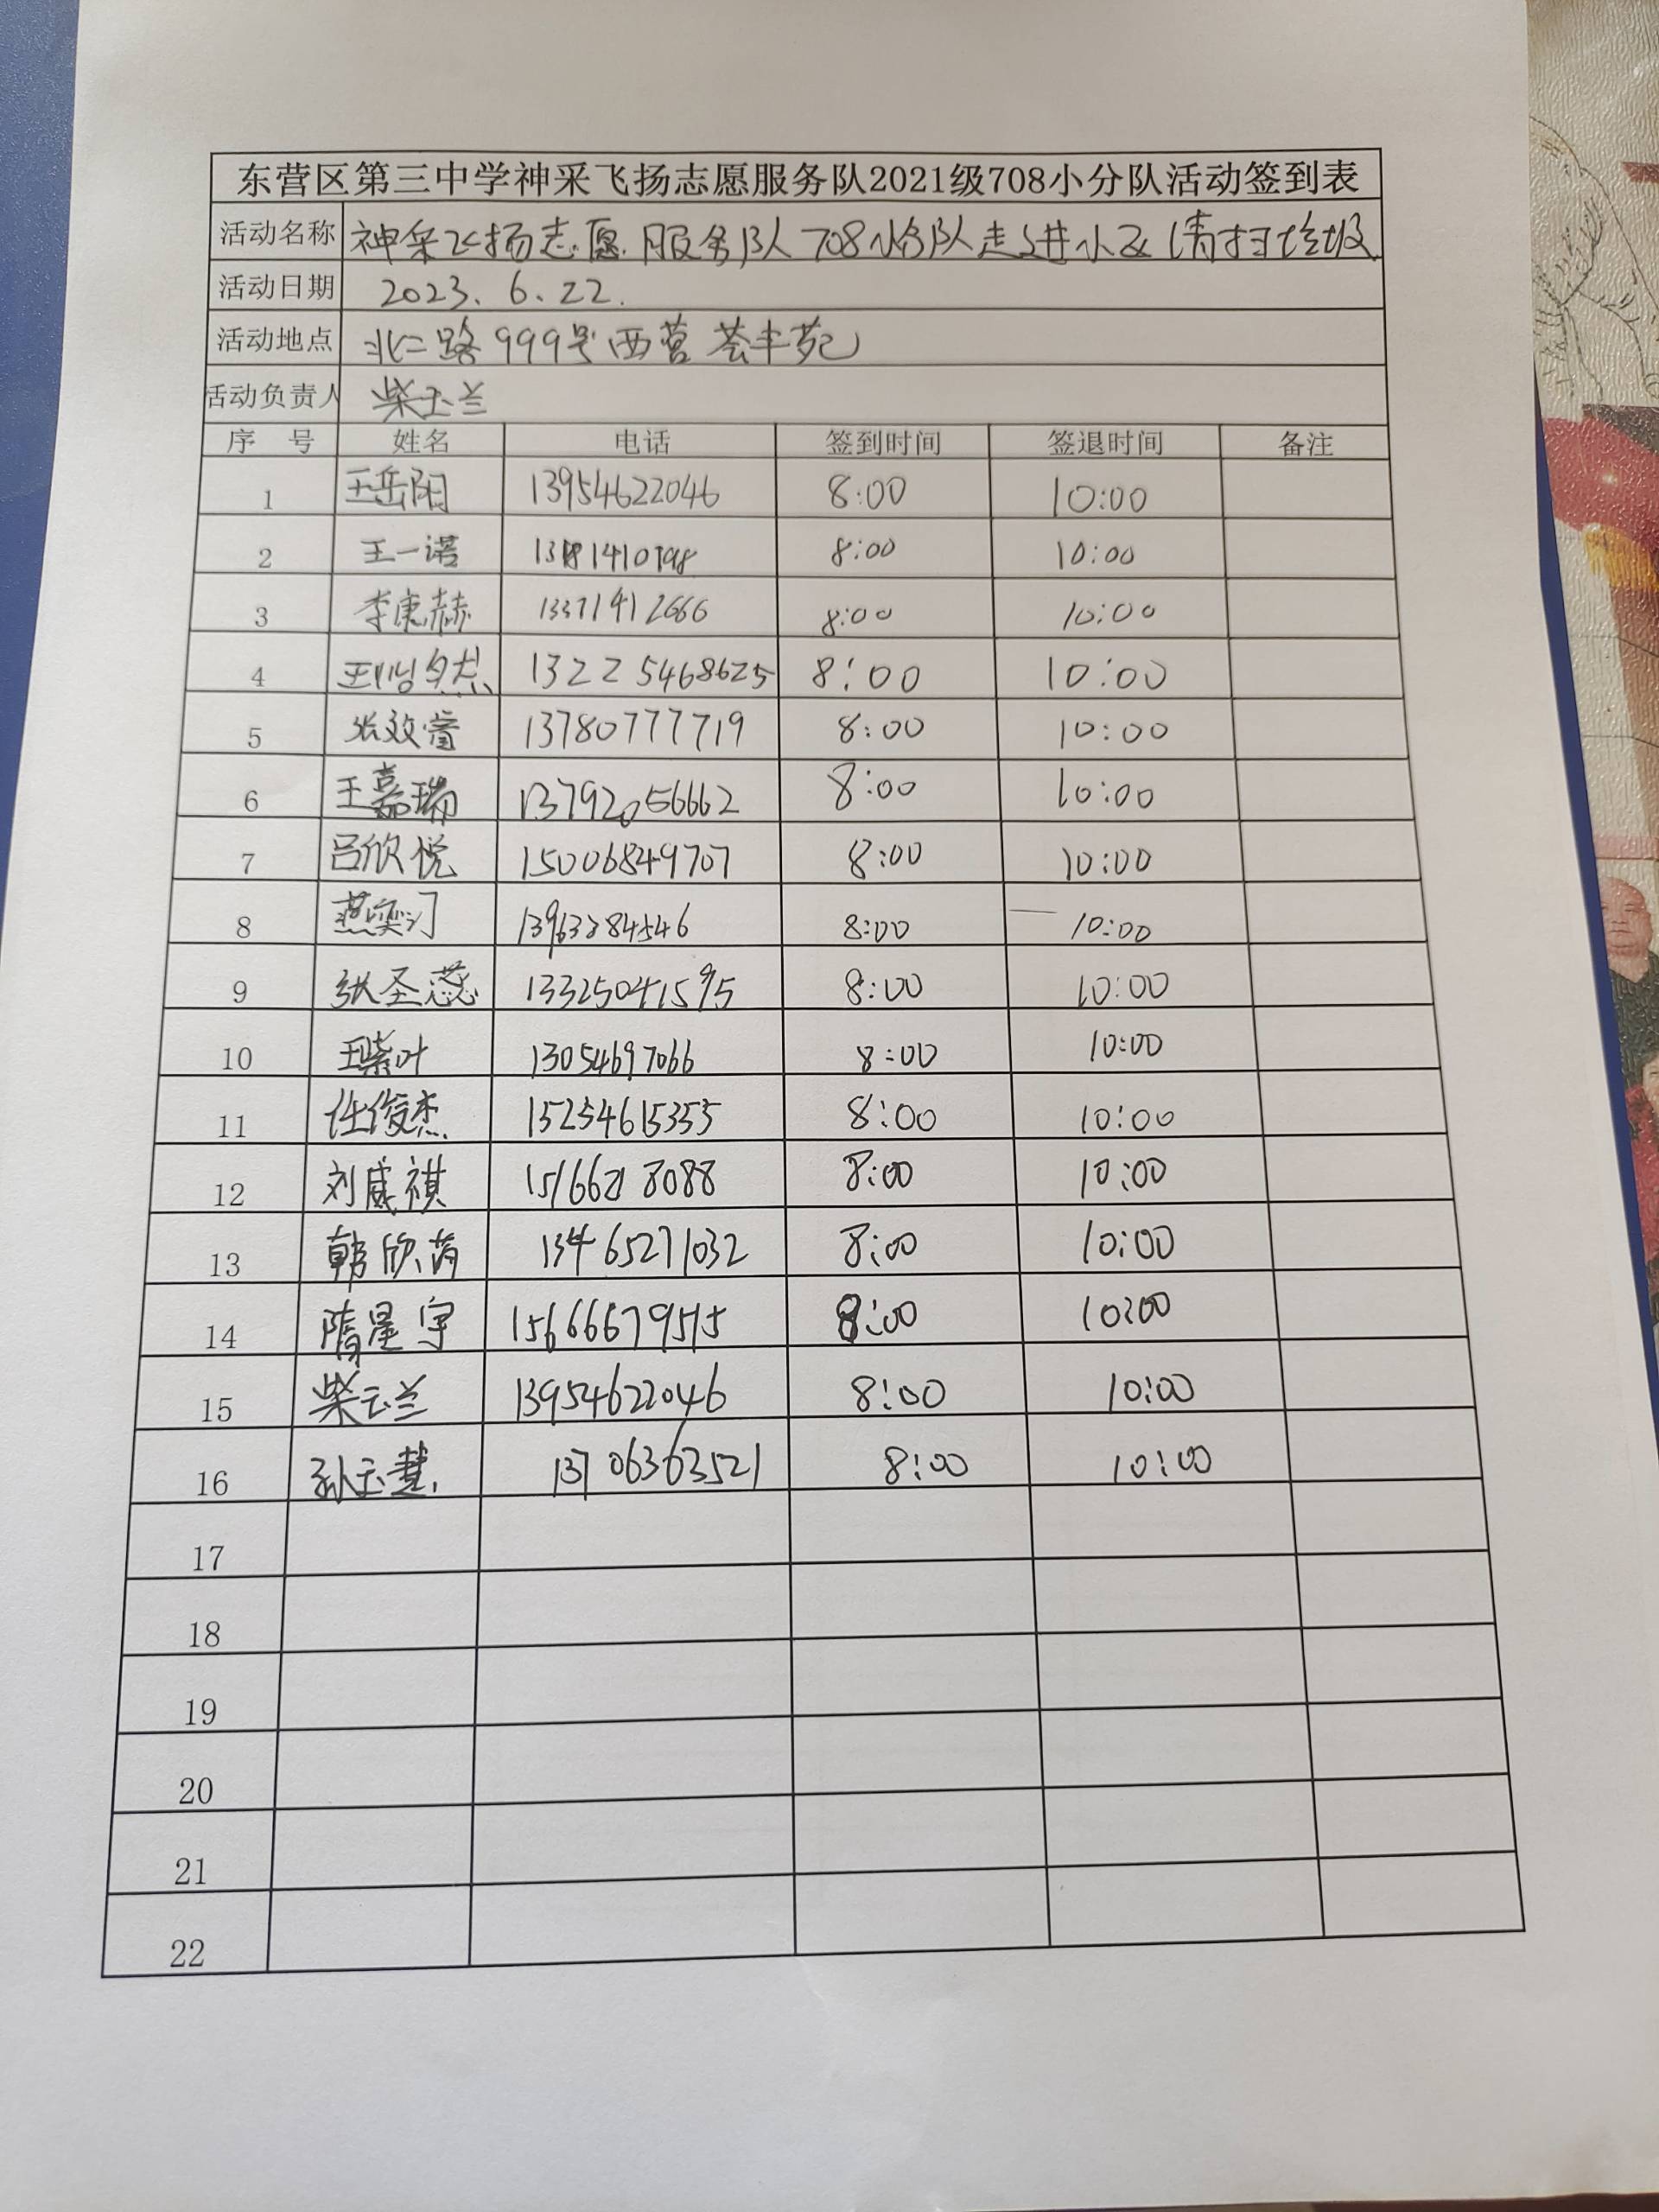 东营区第三中学神采飞扬志愿服务队2021级708小分队活动签到表
活动名称 神采飞扬志愿服务队708小分队走进小区清扫垃圾
活动日期 2023.6.22.
活动地点 北二路999号西营荟丰苑
活动负责人 柴玉兰
序号 姓名 电话 签到时间 签退时间 备注
1 王岳阳 13954622046 8:00 10:00
2 王一诺 8:00 10:00
3 李庚赫 13371412666 8:00 10:00
4 13225468625 8:00 10:00
5 张效萱 13780777719 8:00 10:00
6 王嘉瑞 13792056662 8:00 10:00
7 吕欣悦 15006849707 8:00 10:00
8 燕奕汀 13963384546 8:00 10:00
9 张圣蕊 13325041595 8:00 10:00
10 王紫叶 13054697066 8:00 10:00
11 任俊杰 15254615355 8:00 10:00
12 刘威祺 15166218088 8:00 10:00
13 韩欣芮 13465271032 8:00 10:00
14 隋星宇 15666679515 8:00 10:00
15 柴玉兰 13954622046 8:00 10:00
16 孙玉慧 13706363521 8:00 10:00
17
18
19
20
21
22